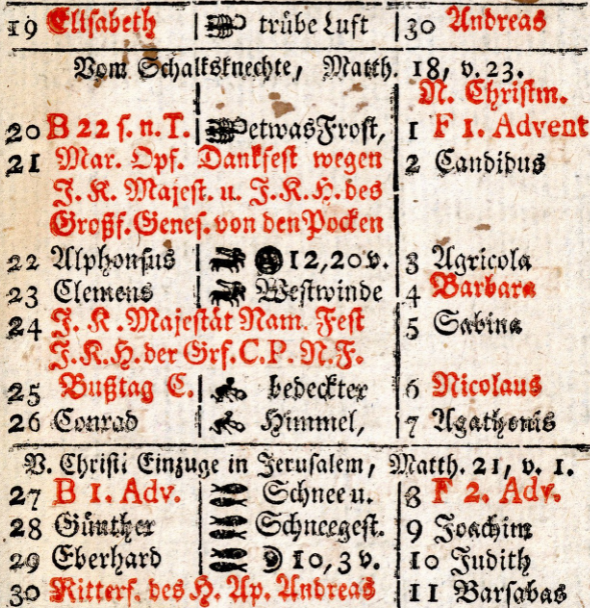 19 Elisabeth trübe Luft 30 Andreas
Vom Schalksknechte, Matth. 18, v. 23.
N. Christm.
20 B 22 s. n. T. etwas Frost, 1 F 1. Advent
21 Mar. Opf. Dankfest wegen 2 Candidus
J. K. Majest. u. J. K. H. des
Großf. Genes. von den Pocken
22 Alphonsus 12, 20 v. 3 Agricola
23 Clemens Westwinde 4 Barbara
24 J. K. Majestät Nam. Fest 5 Sabina
J. K. H. der Grf. C. P. N. F.
25 Bußtag C. bedeckter 6 Nicolaus
26 Conrad Himmel, 7 Agathonis
V. Christi Einzuge in Jerusalem, Matth. 21, v. 1.
27 B 1. Adv. Schnee u. 8 F 2. Adv.
28 Günther Schneegest. 9 Joachim
29 Eberhard 10, 3 v. 10 Judith
30 Ritterf. des H. Ap. Andreas 11 Barsabas